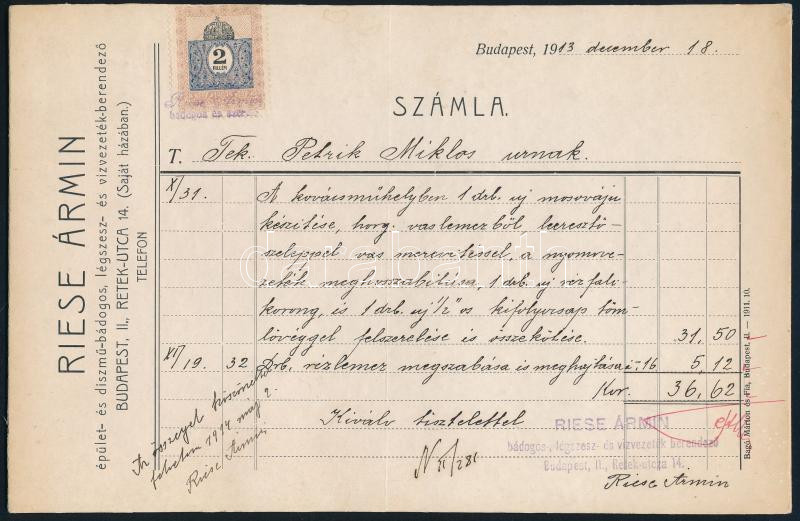 RIESE ÁRMIN
épület- és diszmű-bádogos, légszesz- és vizvezeték-berendező
BUDAPEST, II., RETEK-UTCA 14. (Saját házában.)
TELEFON
2
FILLÉR
bádogos és
Budapest, 1913 december 18.
SZÁMLA.
T. Tek. Petrik Miklos urnak.
X/31. A kovácsműhelyben 1 drb. uj mosováju
készitése, horg. vaslemezből, leeresztő-
szeleppel vas merevitéssel, a nyomove-
zeték meghosszabitása, 1 drb. uj vizfali-
korong, és 1 drb. uj 1/2" os kifolyócsap töm-
löveggel felszerelése is összekötése. 31, 50
XI/19. 32 Drb. vizlemez megszabása is meghajtása á -, 16 5, 12
Kor. 36, 62
Kiváló tisztelettel
RIESE ÁRMIN
bádogos, légszesz- és vizvezeték berendező
Budapest, II., Retek-utcza 14.
Riese Armin
Az összeget köszönettel
felvettem 1914 máj 2.
Riese Armin
N II/281
Bagó Márton és Fia, Budapest, II. — 1911. 10.
darabanth